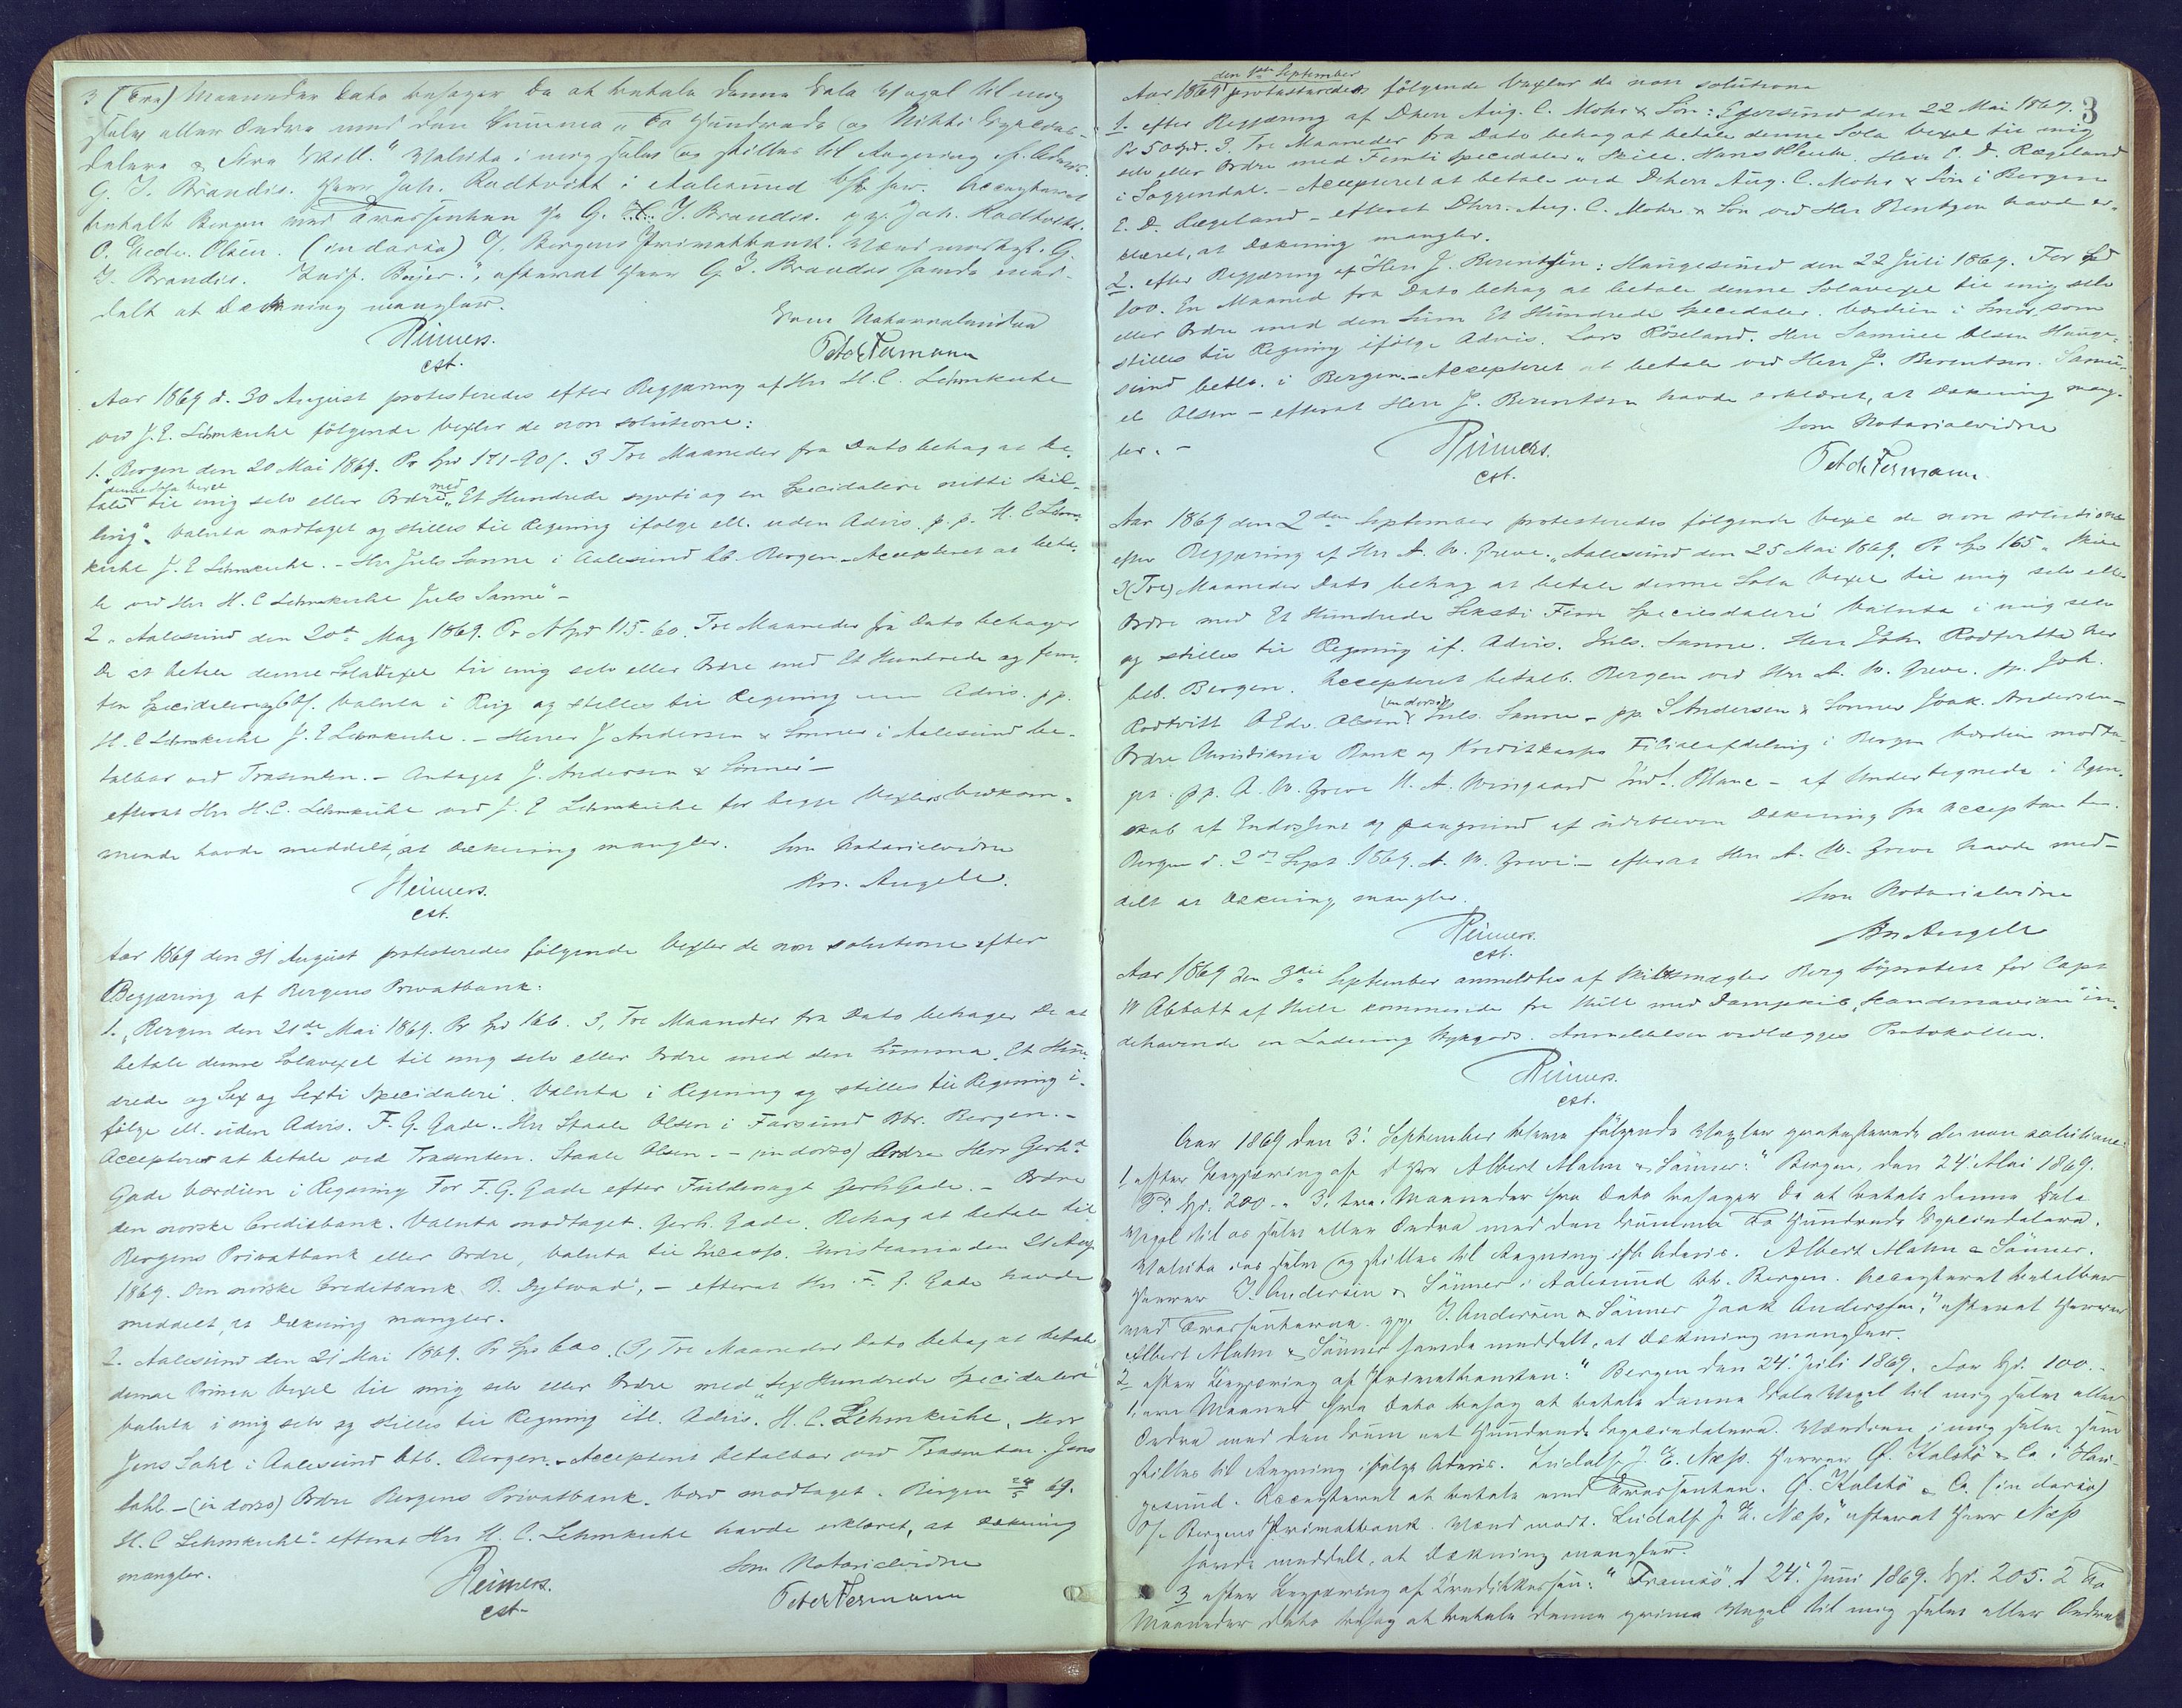 3 (Tre) Maaneder Dato behager De at betale denne Sola Vexel til mig
selv eller Ordre med den Summa „To Hundrede og Nitti Specie-
dalere & Fire Skill." Valuta i mig selv og stilles til Regning if. Advis.
G. J. Brandis. Herr Joh. Rodtvitt i Aalesund btb her. Accepteret
betalt Bergen ved Trassenten Hr G. J. Brandis. pp. Joh. Rodtvitt.
O. Edv. Olsen. (in dorso) O/ Bergens Privatbank. Værd modtgt. G.
J. Brandis. Beyer.", efterat Herr G. J. Brandis havde med-
delt at Dækning mangler.
Som Notarialvidne
Reimers. Peter Fermann
cst.
Aar 1869 d. 30 August protesteredes efter Begjæring af Hr H. C. Lehmkuhl
ved J. E. Lehmkuhl følgende Vexler de non solutione:
1. „Bergen den 20 Mai 1869. Pr Spd 171-90 s. 3 Tre Maaneder fra Dato behag at be-
denne Sola Vexel med
tale til mig selv eller Ordre „Et Hundrede sytti og en Speciedalere nitti Skil-
ling". Valuta modtaget og stilles til Regning ifølge ell. uden Advis. p. p. H. C Lehm-
kuhl J. E Lehmkuhl. - Hr Juls Sanne i Aalesund bb. Bergen - Accepteret at beta-
le ved Hr H. C Lehmkuhl Juls Sanne" -
2. „Aalesund den 20de May 1869. Pr Spd 115-60. Tre Maaneder fra Dato behager
De at betale denne Solavexel til mig selv eller Ordre med Et Hundrede og fem-
ten Speciedaler og 60 s. Valuta i Rng og stilles til Regning uden Advis. pp.
H. C Lehmkuhl J. E Lehmkuhl. - Herrer J Andersen & Sønner i Aalesund be-
talbar ved Trasenten. - Antaget J. Andersen & Sønner" -
efterat Hr H. C. Lehmkuhl ved J. E Lehmkuhl for begge Vexlers Vedkom-
mende havde meddelt, at Dækning mangler. Som Notarialvidne
Reimers. Krs. Angell.
cst.
Aar 1869 den 31 August protesteredes følgende Vexler de non solutione efter
Begjæring af Bergens Privatbank:
1. „Bergen den 21de Mai 1869. Pr Spd 166. 3, Tre Maaneder fra Dato behager De at
betale denne Solavexel til mig selv eller Ordre med den Summa „Et Hun-
drede og Sex og Sexti Speciedaler". Valuta i Regning og stilles til Regning i-
følge ell. uden Advis. F. G. Gade. - Hr Staale Olsen i Farsund Btb. Bergen. -
Accepteret at betale ved Trasenten. Staale Olsen. - (in dorso) Ordre Herr Gerhd
Gade Værdien i Regning For F. G. Gade efter Fuldmagt Gerh Gade. - Ordre
den norske Creditbank. Valuta modtaget. Gerh. Gade. Behag at betale til
Bergens Privatbank eller Ordre, Valuta til Incasso. Christiania den 21 Aug
1869. Den norske Creditbank. B. Dybwad", - efterat Hr F. G. Gade havde
meddelt, at Dækning mangler.
2. Aalesund den 21 Mai 1869. Pr Spd 600. (3, Tre Maaneder Dato behag at betale
denne Prima Vexel til mig selv eller Ordre med „Sex Hundrede Speciedaler"
Valuta i mig selv og stilles til Regning itl. Advis. H. C. Lehmkuhl. Herr
Jens Dahl i Aalesund btb. Bergen. - Accepteret betalbar ved Trasenten. Jens
Dahl - (in dorso) Ordre Bergens Privatbank. Værd modtaget. Bergen 24/5 69.
H. C Lehmkuhl" efterat Hr H. C. Lehmkuhl havde erklæret, at Dækning
mangler. Som Notarialvidne
Reimers. Peter Fermann
cst.
3
den 1ste September
Aar 1869 protesteredes følgende Vexler de non solutione
1. efter Begjæring af Dherr Aug. C. Mohr & Søn: Egersund den 22 Mai 1869.
Pr 50 Spd. 3. Tre Maaneder fra Dato behag at betale denne Sola Vexel til mig
selv eller Ordre med Femti Speciedaler „ Skill. Hans Herr E. D. Rægeland
i Soggendal. - Accepteret at betale ved Dherr Aug. C. Mohr & Søn i Bergen
E. D. Rægeland - efterat Dhrr. Aug. C. Mohr & Søn ved Herr Berntzen havde er-
klæret, at Dækning mangler.
2. efter Begjæring af Herr J. Berentsen: Haugesund den 22 Juli 1869. For Spd
100. En Maaned fra Dato behag at betale denne Solavexel til mig selv
eller Ordre med den Sum Et Hundrede Speciedaler. Værdien i Smør, som
stilles til Regning ifølge Advis. Lars Røseland. Herr Samuel Olsen Hauge-
sund betlr. i Bergen. - Accepteret at betale ved Herr J. Berentsen. Samu-
el Olsen - efterat Herr J. Berentsen havde erklæret, at Dækning mang-
ler. - Som Notarialvidne
Reimers. Peter Fermann
cst.
Aar 1869 den 2den September protesteredes følgende Vexel de non solutione
efter Begjæring af Hr A. W. Greve. „Aalesund den 25 Mai 1869. Pr Spd 165 „ Skill
3 (Tre) Maaneder Dato behag at betale denne Sola Vexel til mig selv eller
Ordre med Et Hundrede Seksti Fem Speciesdaler. Valuta i mig selv
og stilles til Regning if. Advis. Juls. Sanne. Herr Joh. Rodtvitt her
btb. Bergen. Accepteret betalb. Bergen ved Hr A. W. Greve. pp. Joh.
(in dorso)
Rodtvitt O Edv. Olsen. Juls. Sanne - pp. J Andersen & Sønner Joak. Andersen -
Ordre Christiania Bank og Kreditkasses Filialafdeling i Bergen Værdien modta-
get. pp. A. W. Greve H. A. Wingaard Ludv. Blanc - af Undertegnede i Egen-
skab af Endossent og paagrund af udebleven Dækning fra Acceptanten.
Bergen d. 2den Sept. 1869. A. W. Greve" - efterat Herr A. W. Greve havde med-
delt at Dækning mangler. Som Notarialvidne
Reimers. Krs Angell
cst.
Aar 1869 den 3die September anmeldtes af Skibsmægler Berg Søprotest for Capt
W Abbott af Hull kommende fra Hull med Dampskib „Scandinavian" in-
dehavende en Ladning Stykgods. Anmeldelsen vedlægges Protokollen.
Reimers.
cst.
Aar 1869 den 3' September bleve følgende Vexler protesterede de non solutione:
1. efter Begjæring af DHrr Albert Mohn & Sønner: "Bergen, den 24' Mai 1869.
Pr Spd. 200. - 3, tre Maaneder fra Dato behager De at betale denne Sola
Vexel til os selv eller Ordre med den Summa To Hundrede Speciedalere.
Valuta i os selv og stilles til Regning ifl. Advis. Albert Mohn & Sønner.
Herrer J. Andersen & Sønner i Aalesund btb. Bergen. Accepteret betalbar
ved Trassenterne. pp. J. Andersen & Sønner Joak Anderssen," efterat Herrer
Albert Mohn & Sønner havde meddelt, at Dækning mangler.
2 efter Begjæring af Privatbanken: "Bergen den 24' Juli 1869. For Spd. 100. -
1, een Maaned fra Dato behag at betale denne Sola Vexel til mig selv eller
Ordre med den Sum eet Hundrede Speciedalere. Værdien i mig selv som
stilles til Regning ifølge Advis. Ludolf J. E. Næss. Herrer O. Kalstø & Co i Hau-
gesund. Accepteret at betale ved Trassenten. O. Kalstø & Co. (in dorso)
O/ Bergens Privatbank. Værd modt. Ludolf J. E. Næss," efterat Herr Næss
havde meddelt, at Dækning mangler.
3 efter Begjæring af Kreditkassen: "Tromsø d 24' Juni 1869. Spd. 205. 2 To
Maaneder Dato behag at betale denne prima Vexel til mig selv eller Ordre